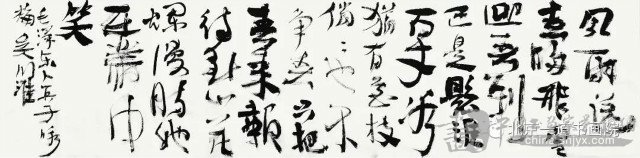 风雨送
春归飞雪
迎春到
已是悬崖
百丈冰
犹有花枝
俏俏也不
争春只把
春来报
待到山花
烂漫时她
在丛中
笑
毛泽东卜算子咏
梅 吴川淮